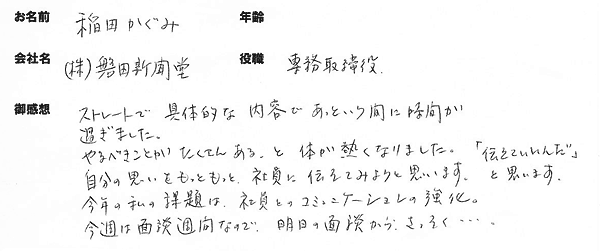 お名前 稲田かぐみ 年齢
会社名 (株)磐田新聞堂 役職 専務取締役.
御感想 ストレートで 具体的な 内容で あっという間に時間が
過ぎました。
やるべきことが たくさん ある、と 体が 熱くなりました。「伝えていいんだ」
自分の思いをもっともっと、社員に 伝えてみようと思います。 と思います。
今年の私の課題は、社員とのコミュニケーションの強化。
今週は面談週間なので、明日の面談から、さっそく・・・・。